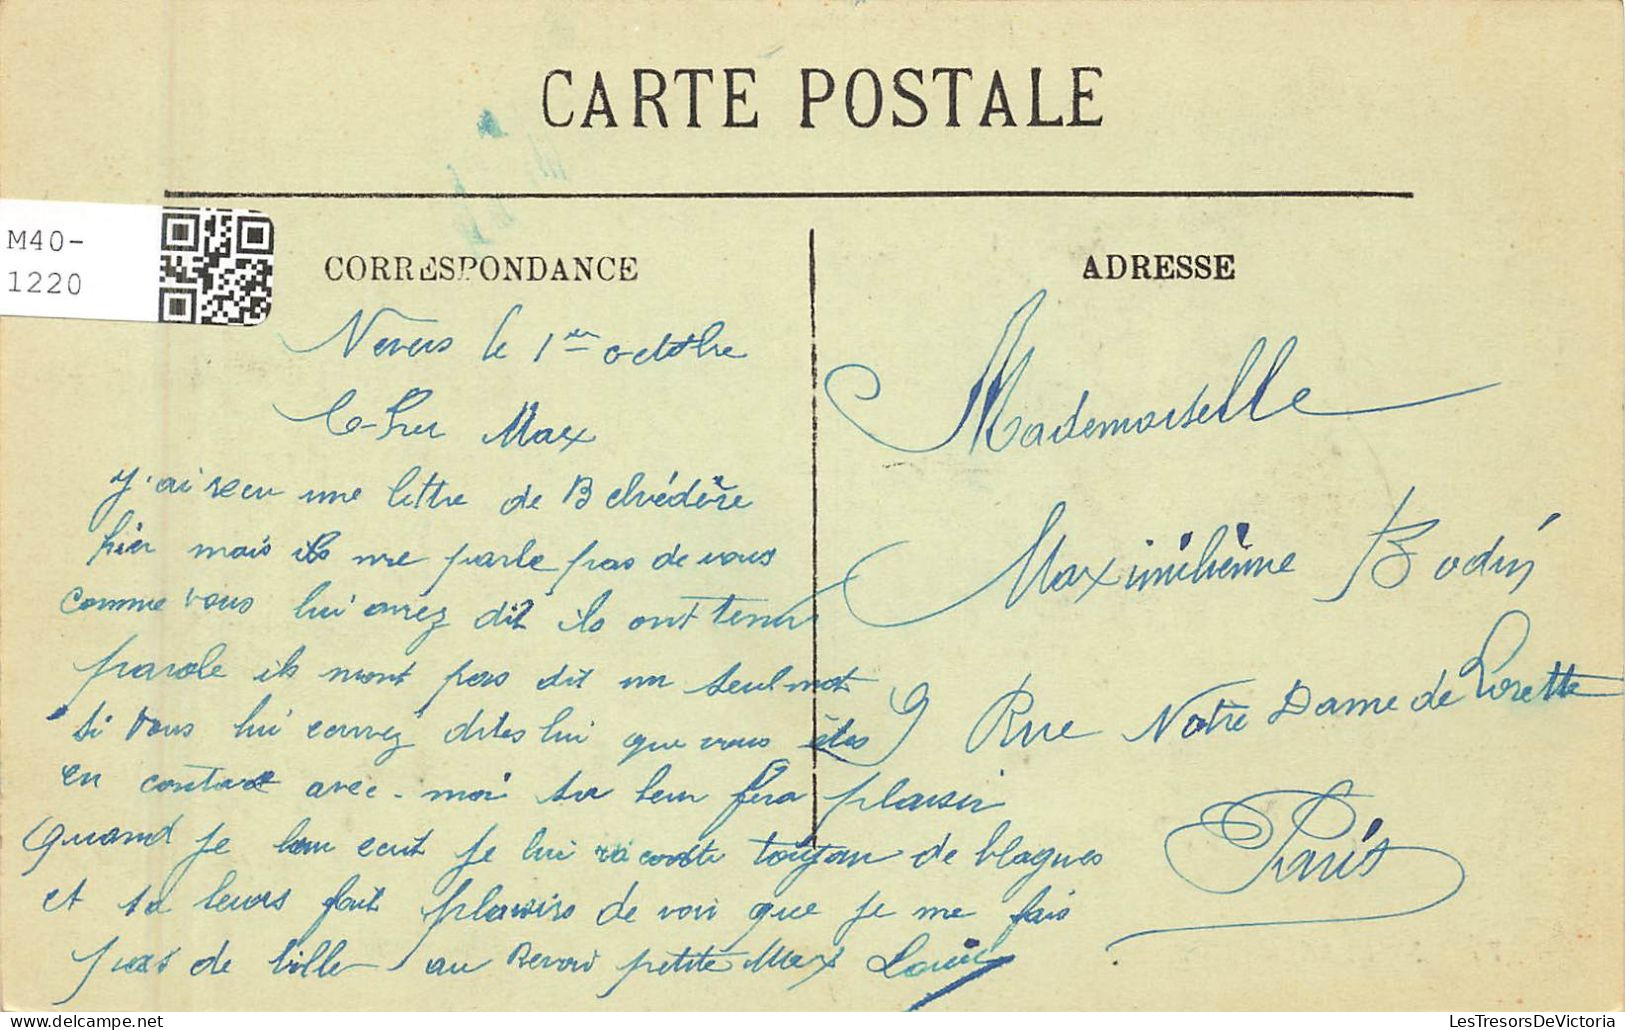 CARTE POSTALE
M40-
1220
CORRESPONDANCE
Nevers le 1er octobre
Cher Max
J'ai recu une lettre de Belvédère
hier mais ils me parle pas de vous
comme vous lui avez dit ils ont tenu
parole ils mont pas dit un seul mot
si vous lui dites lui que vous êtes
en contact avec moi sa leur fera plaisir
Quand je leur ecrit je lui raconte toujour de blagues
et sa leurs fait plaisirs de voir que je me fais
pas de bille au Revoir petite Max Louis
ADRESSE
Mademoiselle
Maximilienne Bodin
9 Rue Notre Dame de Lorette
Paris
LesTresorsDeVictoria